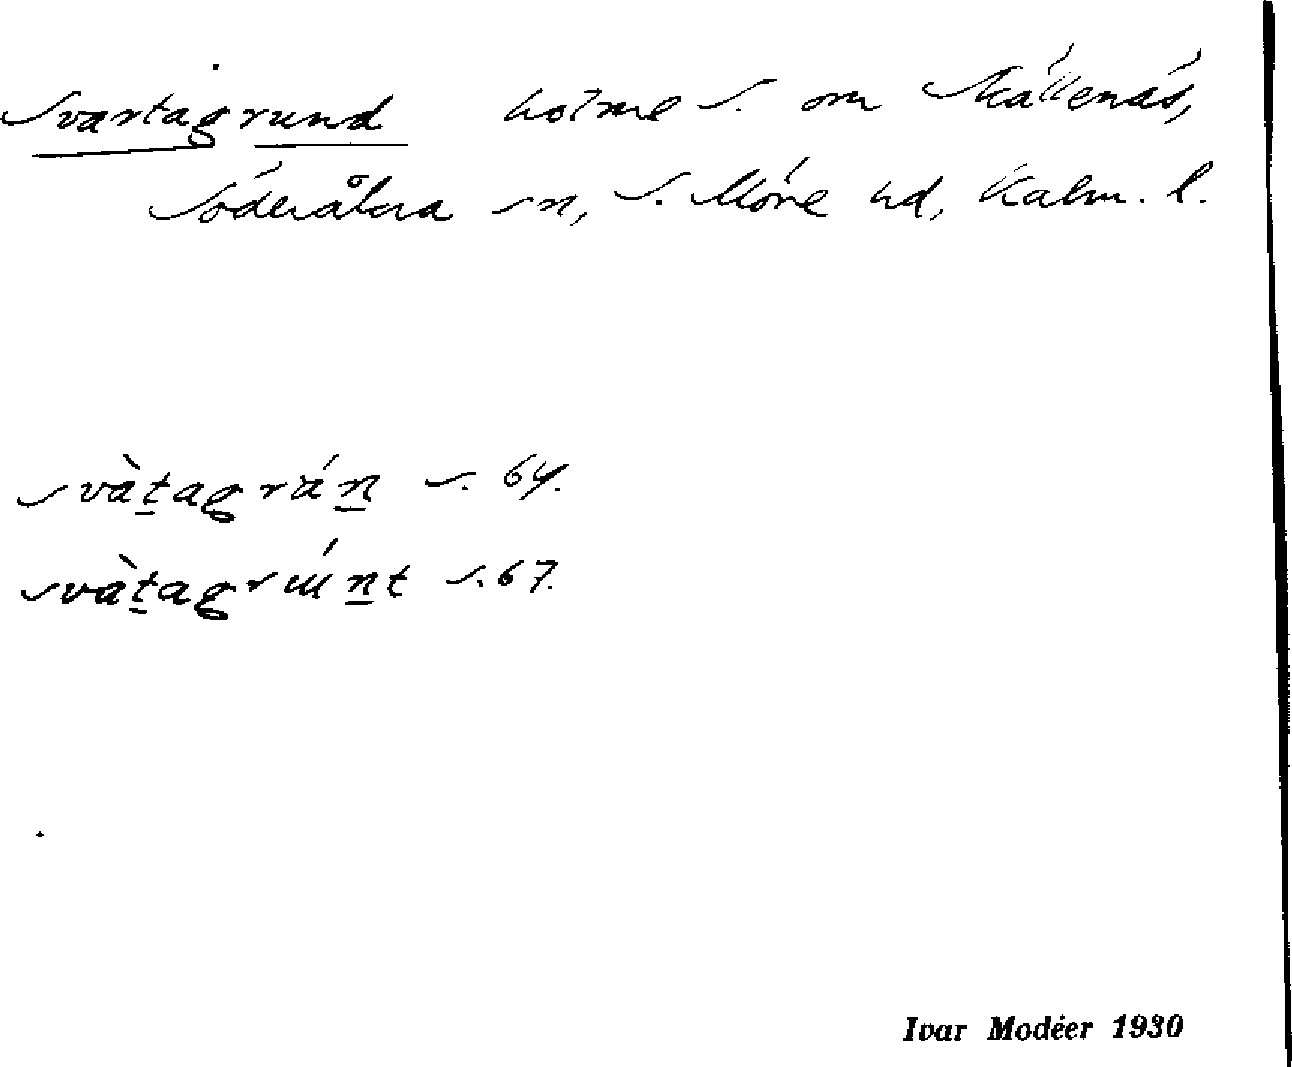 Svartagrund holme S. om Skällenäs,
Söderåkra sn, S. Möre hd, Kalm. l.
svàṯagrán̠ s. 64.
svàṯagrún̠t s. 67.
Ivar Modéer 1930